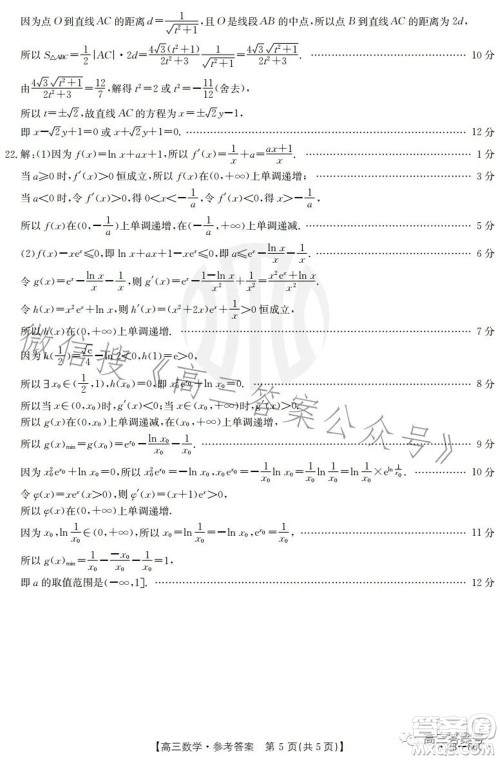 因为点 O 到直线 AC 的距离 d=1/√(t²+1),且 O 是线段 AB 的中点,所以点 B 到直线 AC 的距离为 2d,
所以 S△ABC=1/2|AC|·2d=4√3(t²+1)/(2t²+3)·1/√(t²+1)=4√3√(t²+1)/(2t²+3). 10 分
由4√3√(t²+1)/(2t²+3)=12/7,解得 t²=2 或 t²=-11/12(舍去),
所以 t=±√2,故直线 AC 的方程为 x=±√2y-1,
即 x-√2y+1=0 或 x+√2y+1=0. 12 分
22.解:(1)因为 f(x)=ln x+ax+1,所以 f′(x)=1/x+a=(ax+1)/x. 1 分
当 a≥0 时,f′(x)>0 恒成立,所以 f(x)在(0,+∞)上单调递增; 3 分
当 a<0 时,令 f′(x)>0,得 0<x<-1/a,令 f′(x)<0,得 x>-1/a,
所以 f(x)在(0,-1/a)上单调递增,在(-1/a,+∞)上单调递减. 5 分
(2)f(x)-xeˣ≤0,即 ln x+ax+1-xeˣ≤0,即 a≤eˣ-ln x/x-1/x. 6 分
令 g(x)=eˣ-ln x/x-1/x,则 g′(x)=eˣ-(1-ln x)/x²+1/x²=(x²eˣ+ln x)/x².
令 h(x)=x²eˣ+ln x,则 h′(x)=(x²+2x)eˣ+1/x>0 恒成立,
所以 h(x)在(0,+∞)上单调递增.
因为 h(1/2)=√e/4-ln 2<0,h(1)=e>0,
所以∃x₀∈(1/2,1),h(x₀)=0,即 x₀²eˣ⁰+ln x₀=0. 8 分
所以当 x∈(0,x₀)时,g′(x)<0;当 x∈(x₀,+∞)时,g′(x)>0.
所以 g(x)min=g(x₀)=eˣ⁰-ln x₀/x₀-1/x₀. 9 分
因为 x₀²eˣ⁰+ln x₀=0,所以 x₀²eˣ⁰=-ln x₀,即 x₀eˣ⁰=-1/x₀ ln x₀=1/x₀ ln 1/x₀=ln 1/x₀×e^(ln 1/x₀). 10 分
令 φ(x)=xeˣ(x>0),则 φ′(x)=(x+1)eˣ>0,
所以 φ(x)在(0,+∞)上单调递增.
因为 x₀,ln 1/x₀∈(0,+∞),所以 x₀=ln 1/x₀=-ln x₀,eˣ⁰=1/x₀, 11 分
所以 g(x)min=1/x₀-(-x₀)/x₀-1/x₀=1,
即 a 的取值范围是(-∞,1]. 12 分
微信搜《高三答案公众号》
【高三数学·参考答案 第 5 页(共 5 页)】